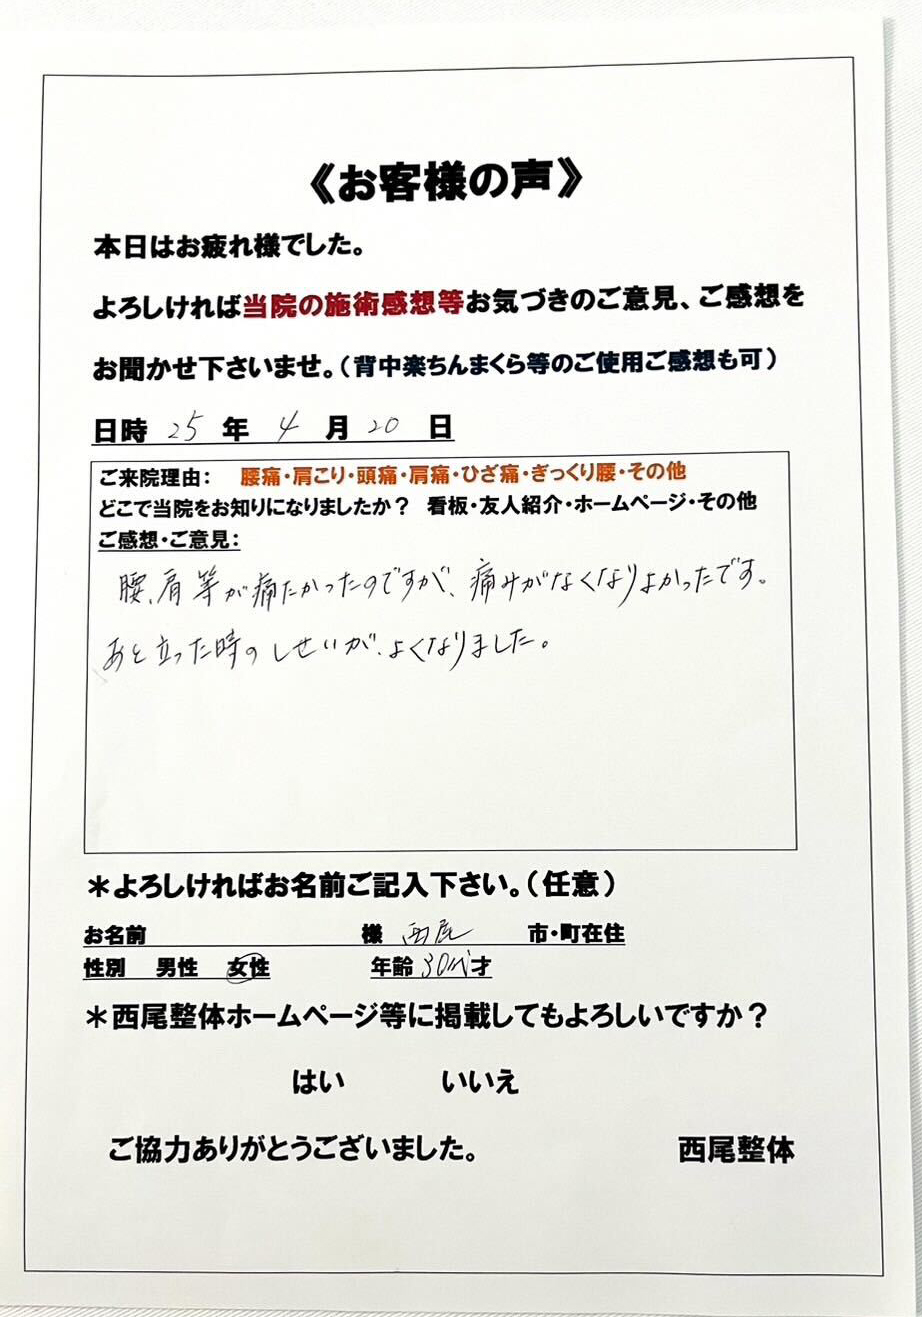 《お客様の声》
本日はお疲れ様でした。
よろしければ当院の施術感想等お気づきのご意見、ご感想を
お聞かせ下さいませ。（背中楽ちんまくら等のご使用ご感想も可）
日時 25 年 4 月 20 日
ご来院理由： 腰痛・肩こり・頭痛・肩痛・ひざ痛・ぎっくり腰・その他
どこで当院をお知りになりましたか？ 看板・友人紹介・ホームページ・その他
ご感想・ご意見：
腰、肩等が痛たかったのですが、痛みがなくなりよかったです。
あと立った時のしせいが、よくなりました。
＊よろしければお名前ご記入下さい。（任意）
お名前 様 西尾 市・町在住
性別 男性 女性 年齢 30代才
＊西尾整体ホームページ等に掲載してもよろしいですか？
はい いいえ
ご協力ありがとうございました。 西尾整体